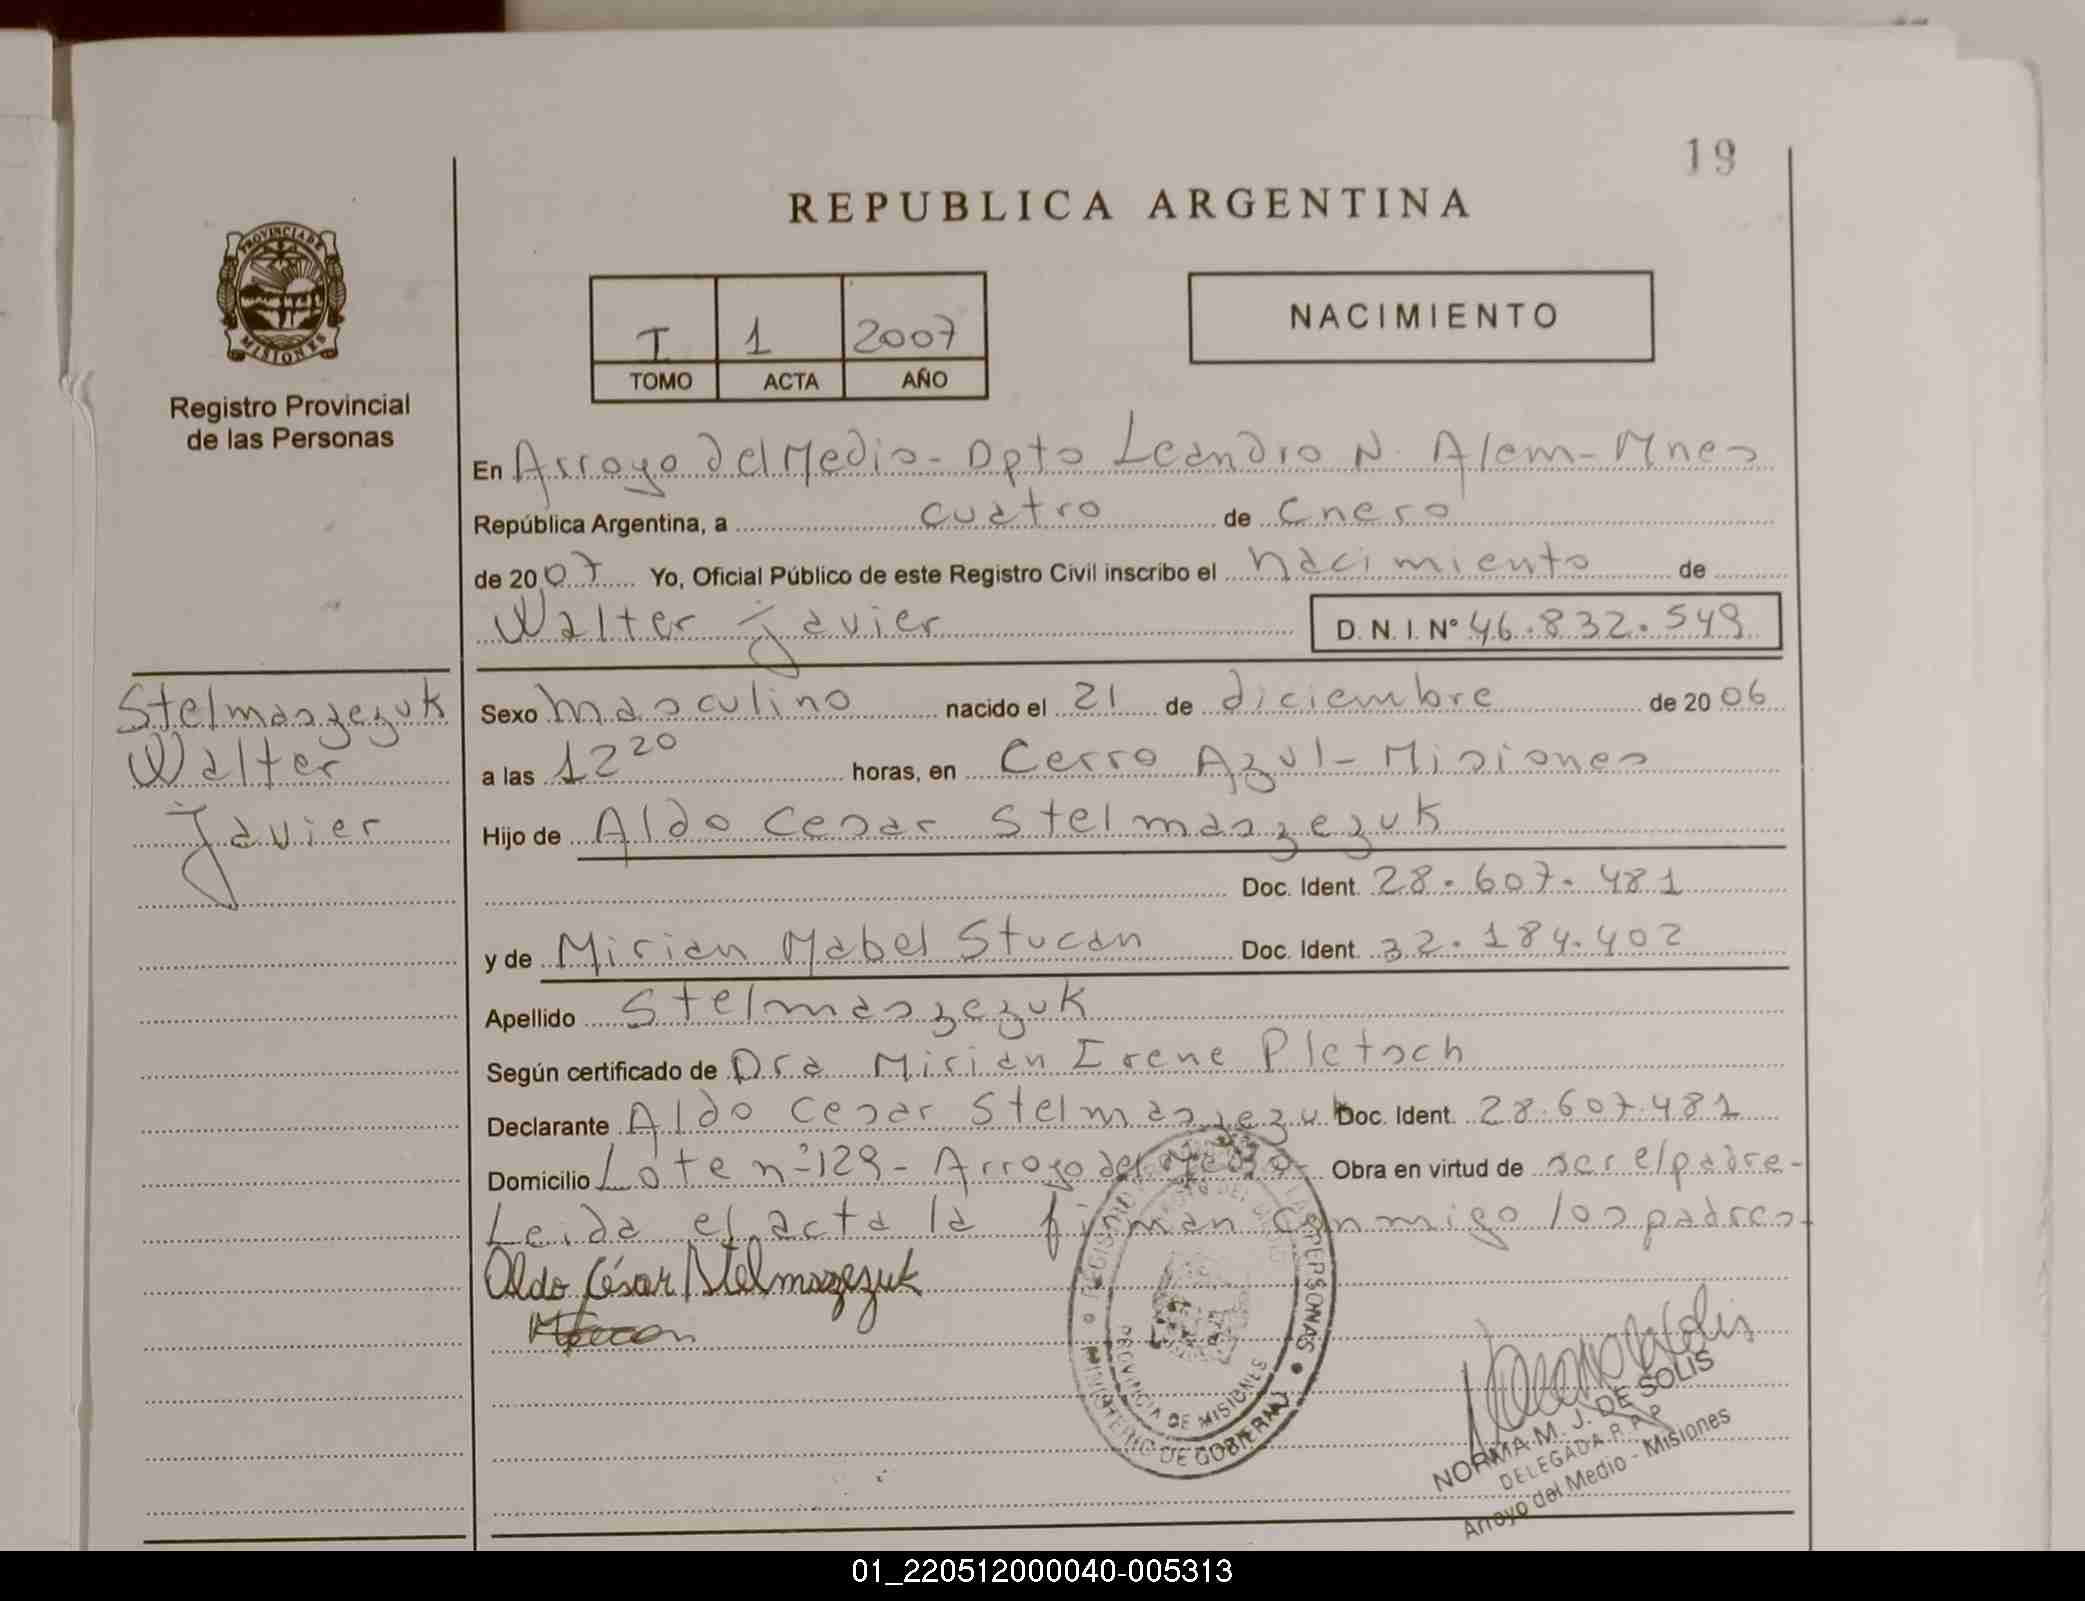 19
REPUBLICA ARGENTINA
PROVINCIA DE
MISIONES
Registro Provincial
de las Personas
I 1 2007
TOMO ACTA AÑO
NACIMIENTO
En Arroyo del Medio - Dpto Leandro N. Alem - Mnes
República Argentina, a cuatro de enero
de 2007 Yo, Oficial Público de este Registro Civil inscribo el nacimiento de
Walter Javier D. N. I. N° 46.832.549
Stelmaszezuk
Walter
Javier
Sexo masculino nacido el 21 de diciembre de 2006
a las 12 20 horas, en Cerro Azul - Misiones
Hijo de Aldo Cesar Stelmaszezuk
Doc. Ident. 28.607.481
y de Mirian Mabel Stucan Doc. Ident. 32.184.402
Apellido Stelmaszezuk
Según certificado de Dra Mirian Irene Pletsch
Declarante Aldo Cesar Stelmaszezuk Doc. Ident. 28.607.481
Domicilio Lote n° 129 - Arroyo del Medio - Obra en virtud de ser el padre -
Leida el acta la firman conmigo los padres.
Aldo César Stelmaszezuk
REGISTRO PERSONAS
PROVINCIA DE MISIONES
MINISTERIO DE GOBIERNO
NORMA M. J. DE SOLIS
DELEGADA R P P
Arroyo del Medio - Misiones
01_220512000040-005313